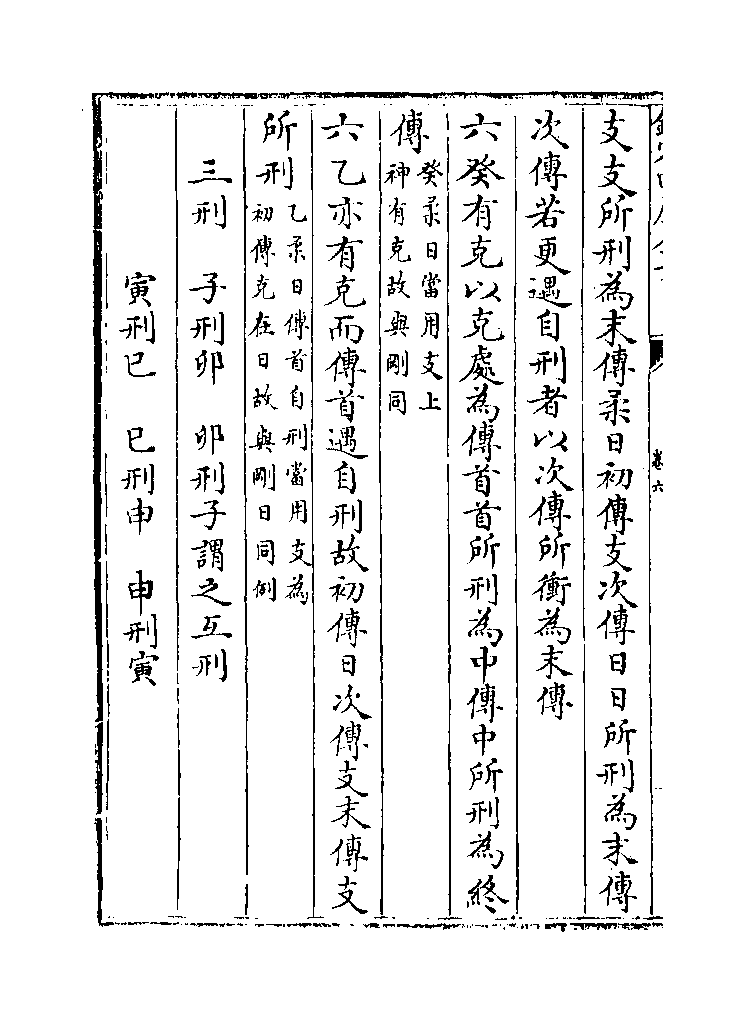 支支所刑為末傳柔日初傳支次傳日日所刑為末傳
次傳若更遇自刑者以次傳所衝為末傳
六癸有克以克處為傳首首所刑為中傳中所刑為終
傳癸柔日當用支上神有克故與剛同
六乙亦有克而傳首遇自刑故初傳日次傳支末傳支
所刑乙柔日傳首自刑當用支為初傳克在日故與剛日同例
三刑　子刑卯　卯刑子謂之互刑
寅刑巳　巳刑申　申刑寅
卷六